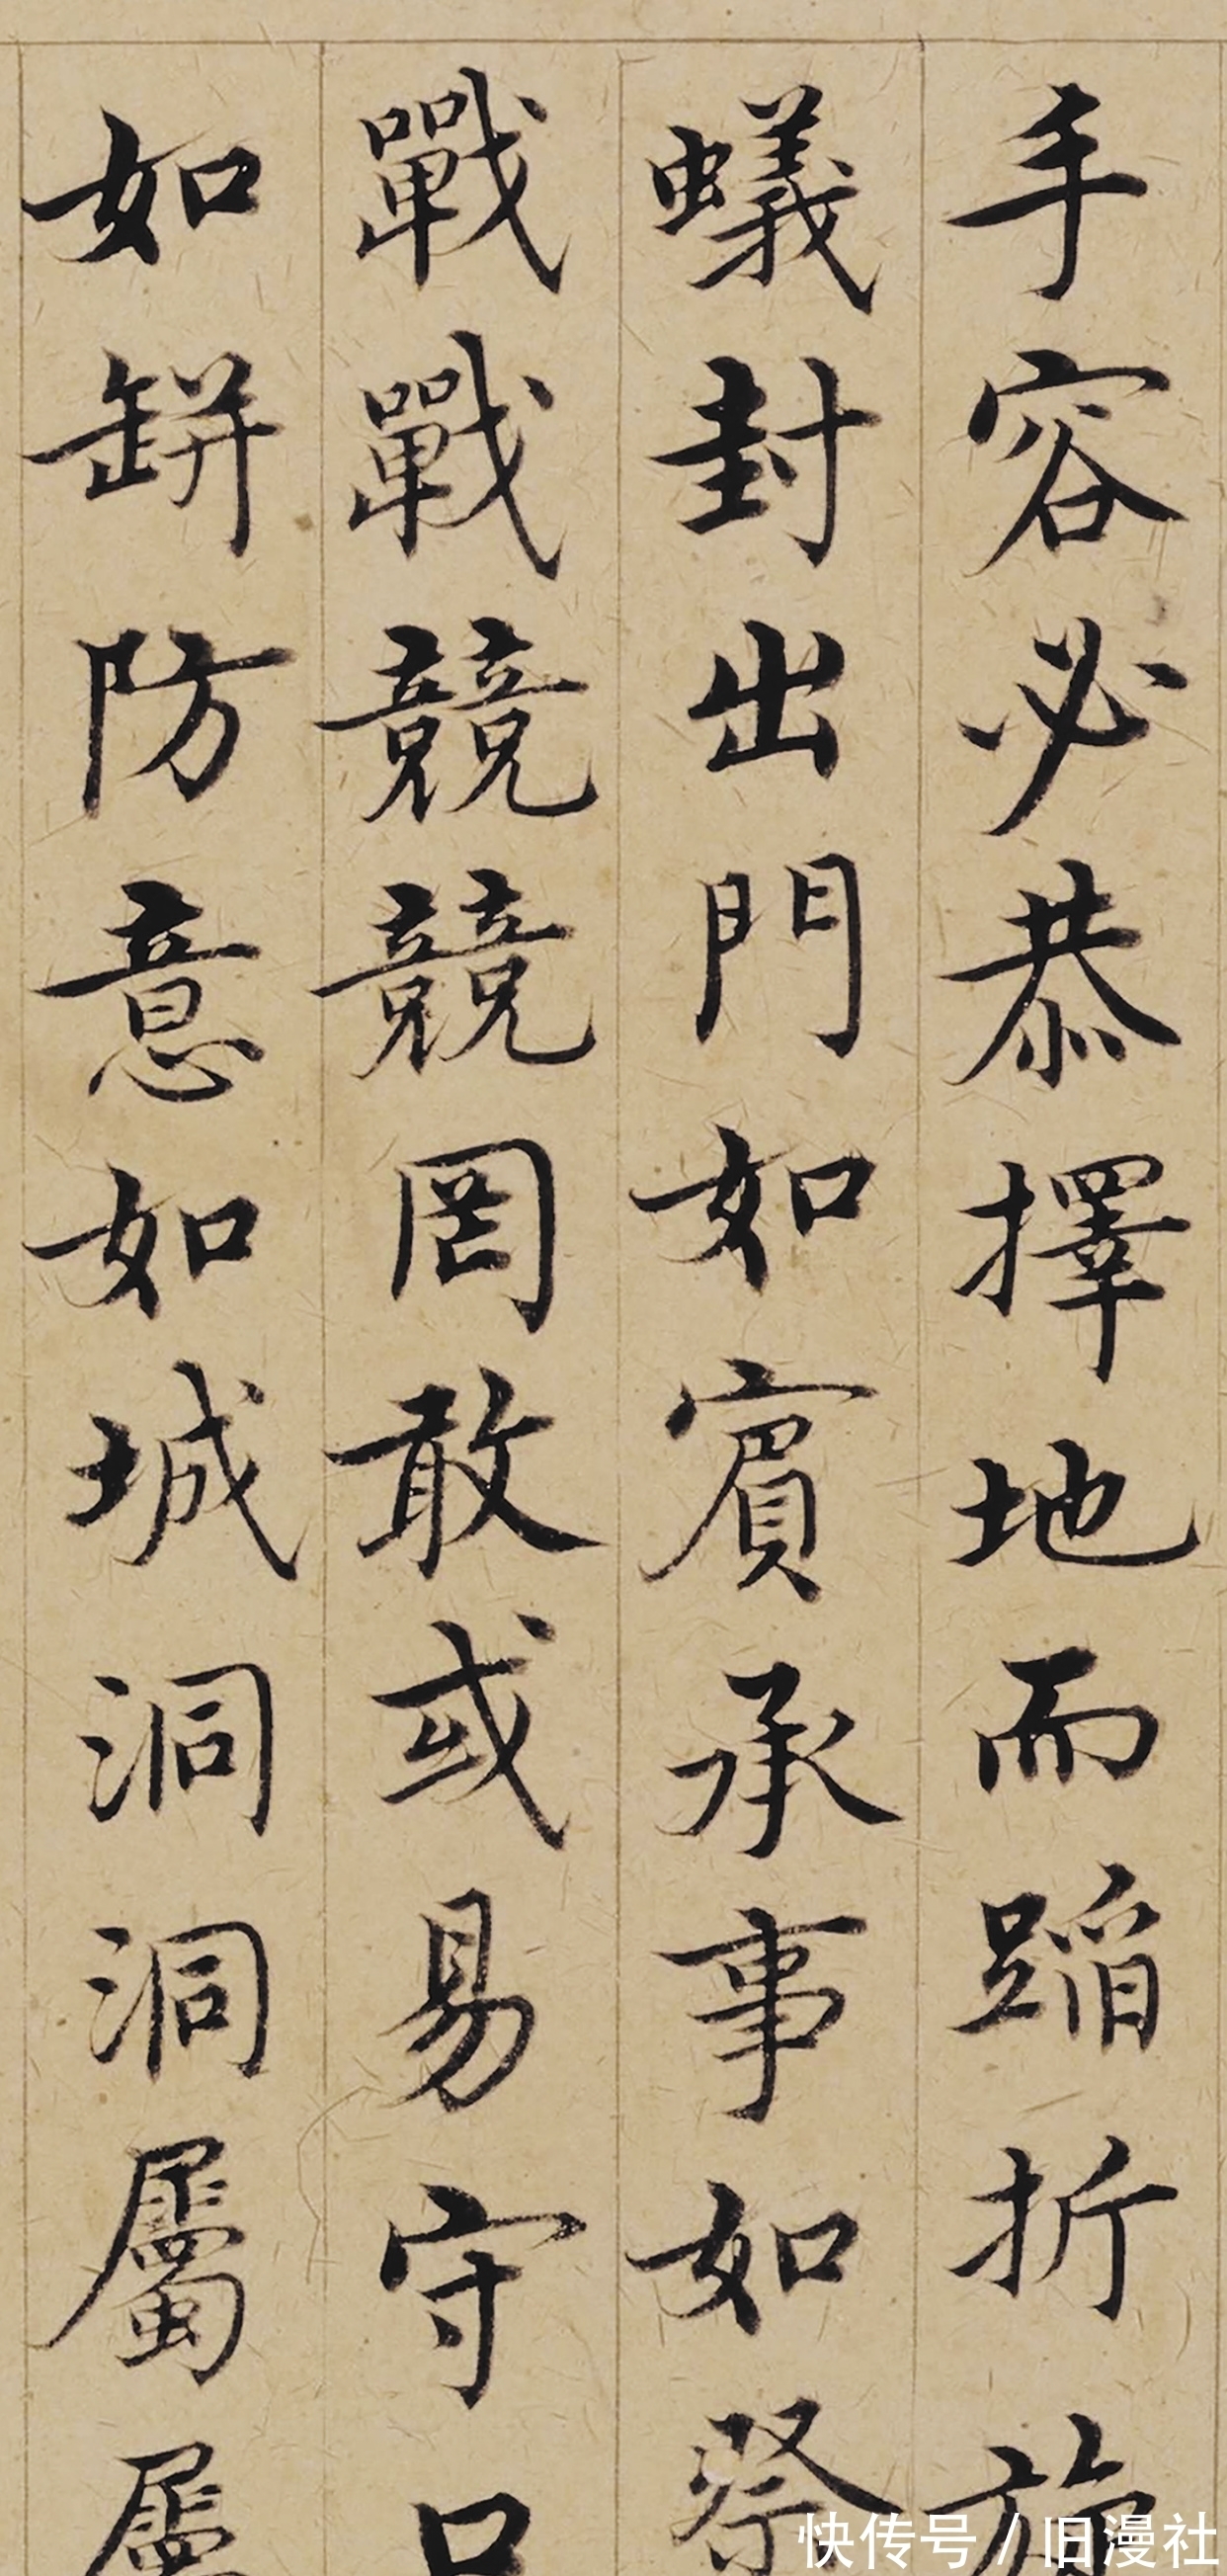 手容必恭擇地而蹈折旋
蟻封出門如賓承事如祭
戰戰競競罔敢或易守口
如缾防意如城洞洞屬屬
快传号/旧漫社